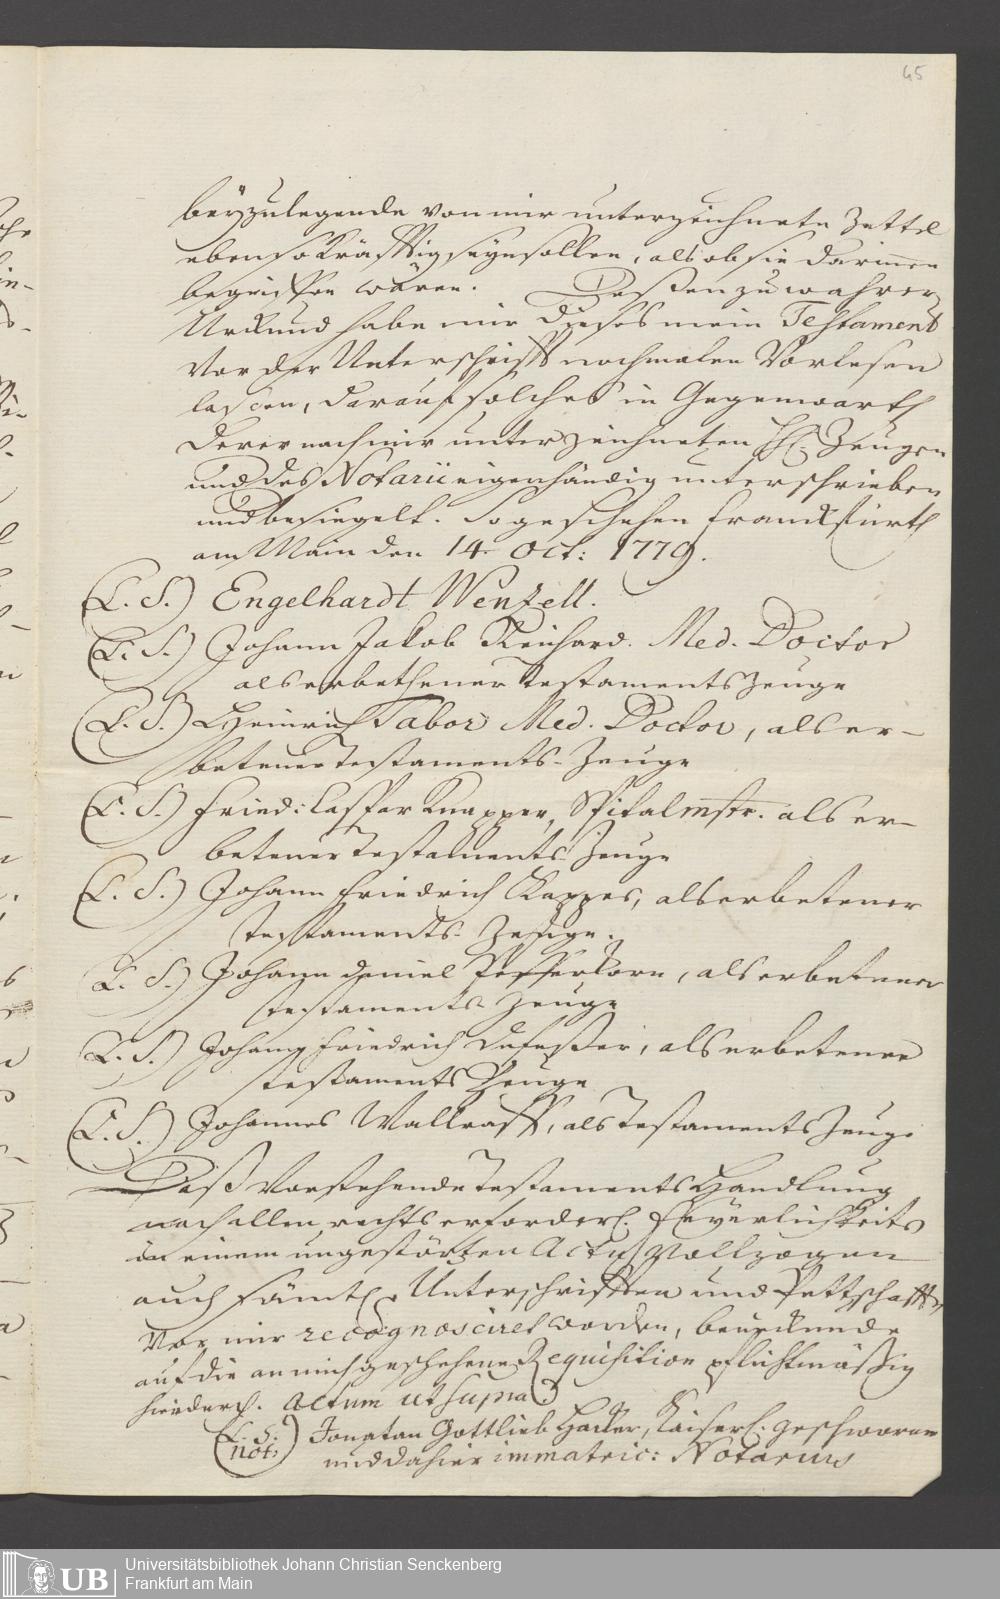 65
beyzulegende von mir unterzeichnete Zettel
eben so kräfftig seyn sollen, als ob sie darinnen
begriffen wären. Dessen zu wahrer
Urkund habe mir dieses mein Testament
vor der Unterschrifft nochmalen Vorlesen
lassen, darauf solches in Gegenwarth
derer nach mir unterzeichneten HH. Zeugen
und des Notarii eigenhändig unterschrieben
und besiegelt. So geschehen Franckfurth
am Main den 14 Oct: 1779.
(L. S.) Engelhardt Wenzell.
(L. S.) Johann Jakob Reinhard. Med. Doctor
als erbethener Testaments Zeuge
(L. S.) Heinrich Tabor Med. Doctor, als er-
betener Testaments-Zeuge
(L. S.) Fried: Caspar Knapper, Spitalmstr. als er-
betener Testaments Zeuge
(L. S.) Johann Friedrich Kappes, als erbetener
Testaments-Zeuge.
(L. S.) Johann Daniel Pfefferkorn, als erbetener
Testaments Zeuge
(L. S.) Johann Friedrich als erbetener
Testaments Zeuge
(L. S.) Johannes Wallraff, als Testaments Zeuge
Daß Vorstehende Testaments Handlung
nach allen rechtserforderl. Feyerlichkeits
in einem ungestörten Actu Vollzogen
auch sämtl. Unterschrifften und Pettschafften
Vor mir recognosciret worden, beurkunde
auf die an mich geschehene Requisition pflichtmäßig
hierdurch. Actum ut supra.
(L. S. Not.) Jonatan Gottlieb Hacker, Kaiserl. geschworner
und dahier immatric: Notarius
UB Universitätsbibliothek Johann Christian Senckenberg
Frankfurt am Main